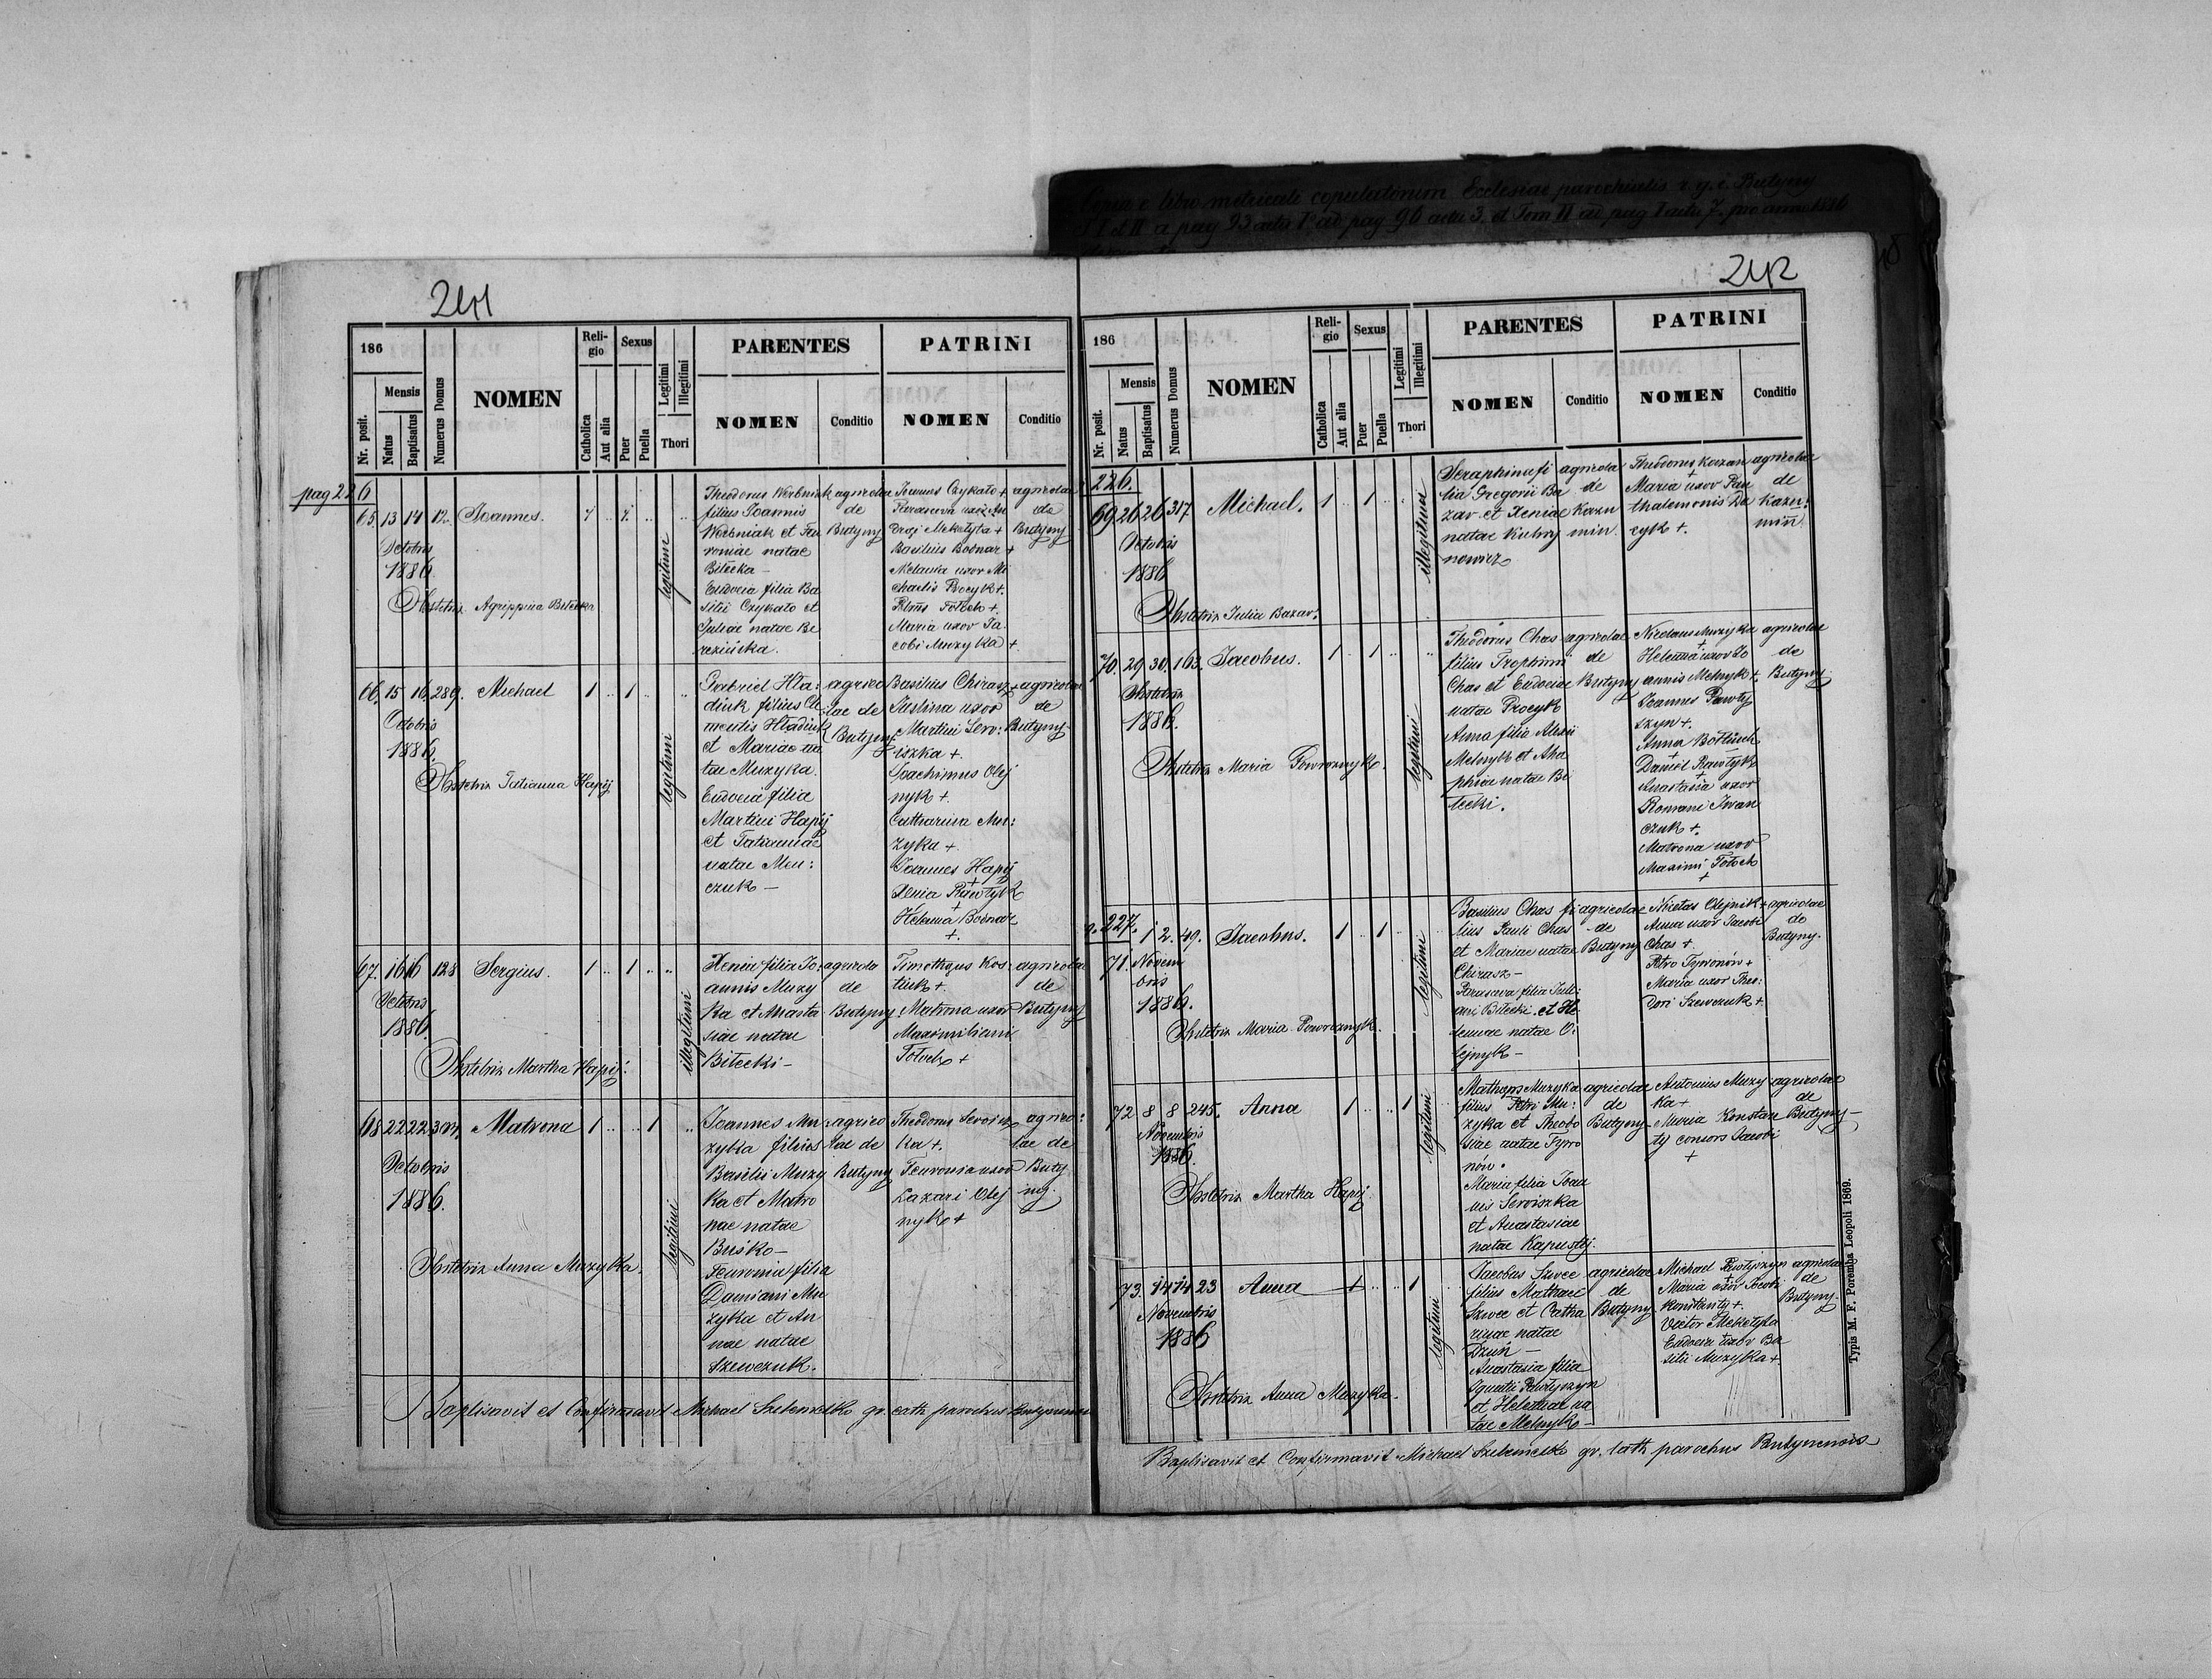 Copia e libro metricali copulatorum Ecclesiae parochialis r. g. c. Butyny
T I et II a pag 93 actu 1º ad pag 96 actu 3. et Tom II ad pag 1 actu 7. pro anno 1886
241
186
Nr. posit.
Mensis
Natus
Baptisatus
Numerus Domus
NOMEN
Reli-
gio
Catholica
Aut alia
Sexus
Puer
Puella
Legitimi
Illegitimi
Thori
PARENTES
NOMEN
Conditio
PATRINI
NOMEN
Conditio
pag 226
65. 13 14 12. Joannes. 1 .. 1. .. ..
Octobris
1886.
Obstetrix Agrippina Bilecka
legitimi
Theodorus Werbniak
filius Joannis
Werbniak et Fa
roniae natae
Bilecka –
Eudocia filia Ba
silii Czykało et
Juliae natae Be
rezińska.
agricolae
de
Butyny
Joannes Czykało +
Parasceva uxor An
drej Meketyta +
Basilius Bodnar +
Melania uxor Mi
chaelis Procyk +.
Petrus Tołoch +.
Maria uxor Ja
cobi Muzyka +
agricolae
de
Butyny
66. 15 16. 289. Michael 1 .. 1 .. ..
Octobris
1886.
Obstetrix Tatianna Hapij
legitimi
Gabriel Hła:
diuk filius Cle
mentis Hładiuk
et Mariae na
tae Muzyka.
Eudocia filia
Martini Hapij
et Tatiannae
natae Men:
czuk –
agrico
lae de
Butyny.
Basilius Chirasz +
Justina uxor
Martini Sero:
iszka +.
Joachimus Olej
nyk +.
Catharina Mu:
zyka +.
Joannes Hapij
+
Xenia Pawłyk
+
Helena Bodnar
+.
agricolae
de
Butyny
67. 16 16 128 Sergius. 1 .. 1 .. ..
Octobris
1886.
Obstetrix Martha Hapij.
illegitimi
Xenia filia Jo:
annis Muzy
ka et Anasta
siae natae
Bilecki –
agricola
de
Butyny.
Timotheus Kos:
tiuk +.
Matrona uxor
Maximiliani
Tołoch +
agricolae
de
Butyny
68 22 22 304. Matrona 1 .. .. 1 ..
Octobris
1886.
Obstetrix Anna Muzyka.
legitimi
Joannes Mu
zyka filius
Basilii Muzy
ka et Matro
nae natae
Buśko –
Feuronia filia
Damiani Mu
zyka et An
nae natae
Szewczuk.
agrico
lae de
Butyny
Theodorus Serois
ka +.
Feuronia uxor
Lazari Olej
nyk +
agrico:
lae de
Buty
ny.
Baptisavit et Confirmavit Michael Szelemetko gr. cath parochus Butynensis
242
186
Nr. posit.
Mensis
Natus
Baptisatus
Numerus Domus
NOMEN
Reli-
gio
Catholica
Aut alia
Sexus
Puer
Puella
Legitimi
Illegitimi
Thori
PARENTES
NOMEN
Conditio
PATRINI
NOMEN
Conditio
226.
69 26 26 317 Michael. 1 .. 1 ..
Octobris
1886
Obstetrix Julia Bazar.
illegitimi
Seraphina fi
lia Gregorii Ba
zar et Xeniae
natae Kuhry
nowicz
agricola
de
Kazu
min.
Theodorus Kazan
+
Maria uxor Pan
thalemonis Da
cyk +.
agricolae
de
Kazu:
min
70. 29 30. 163. Jacobus. 1 .. 1 .. ..
Octobris
1886.
Obstetrix Maria Powroznyk.
legitimi
Theodorus Chas
filius Trophimi
Chas et Eudociae
natae Procyk
Anna filia Alexii
Melnyk et Aha
phiae natae Bi
lecki.
agricolae
de
Butyny
Nicolaus Muzyka
+
Helena uxor Jo
annis Melnyk +.
Joannes Pawły
szyn +.
Anna Botiuch
+
Daniel Pawłyk
+
Anastasia uxor
Romani Iwan
czuk +.
Matrona uxor
Maximi Tołoch
+
agricolae
de
Butyny
p. 227.
71. 1 2. 49. Jacobus. 1 .. 1 ..
Novem
bris
1886.
Obstetrix Maria Powroznyk.
legitimi
Basilius Chas fi
lius Pauli Chas
et Mariae natae
Chirasz –
Parasceva filia Juli:
ani Bilecki et He
lenae natae O:
lejnyk –
agricolae
de
Butyny
Nicetas Olejnik +
Anna uxor Jacobi
Chas +.
Petro Tyronów +
Maria uxor Theo:
dori Szewczuk +.
agricolae
de
Butyny.
72 8 8 245. Anna 1 .. .. 1
Novembris
1886.
Obstetrix Martha Hapij
legitimi
Matheus Muzyka
filius Petri Mu:
zyka et Theodo
siae natae Tyro
nów.
Maria filia Joan
nis Seroiszka
et Anastasiae
natae Kapustij.
agricolae
de
Butyny
Antonius Muzy
ka +
Maria Konstan
ty consors Jacobi
+
agricolae
de
Butyny –
73. 14 14 23 Anna 1 .. .. 1
Novembris
1886
Obstetrix Anna Muzyka.
legitimi
Jacobus Szwec
filius Mathaei
Szwec et Catha
rinae natae
Dzuń –
Anastasia filia
Ignatii Pawłyszyn
et Helenae na
tae Melnyk –
agricolae
de
Butyny
Michael Pawłyszyn
+
Maria uxor Jacobi
Konstanty +.
Victor Meketyta
Eudocia uxor Ba
silii Muzyka +.
agricolae
de
Butyny.
Baptisavit et Confirmavit Michael Szelemetko gr. cath parochus Butynensis
Typis M. F. Poremba Leopoli 1869.